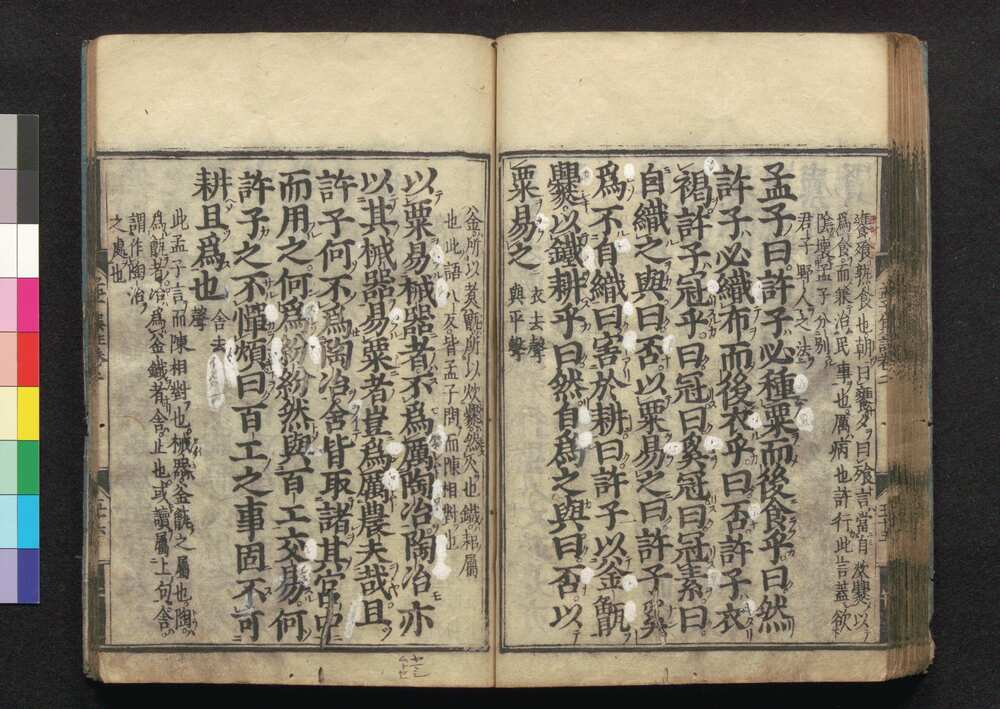 饔飧熟食也朝曰饔夕曰飧言當自炊爨以
爲食而兼治民事也厲病也許行此言蓋欲
陰壞孟子分別
君子野人之法
孟子曰許子必種粟而後食乎曰然
許子必織布而後衣乎曰否許子衣
褐許子冠乎曰冠曰奚冠曰冠素曰
自織之與曰否以粟易之曰許子奚
爲不自織曰害於耕曰許子以釜甑
爨以鐵耕乎曰然自爲之與曰否以
粟易之
衣去聲
與平聲
釜所以煮甑所以炊爨然火也鐵耜屬
也此語八反皆孟子問而陳相對也
以粟易械器者不爲厲陶冶陶冶亦
以其械器易粟者豈爲厲農夫哉且
許子何不爲陶冶舍皆取諸其宮中
而用之何爲紛紛然與百工交易何
許子之不憚煩曰百工之事固不可
耕且爲也
舍去
聲
此孟子言而陳相對也械器釜甑之屬也陶
爲甑者冶爲釜鐵者舍止也或讀屬上句舍
謂作陶冶
之處也